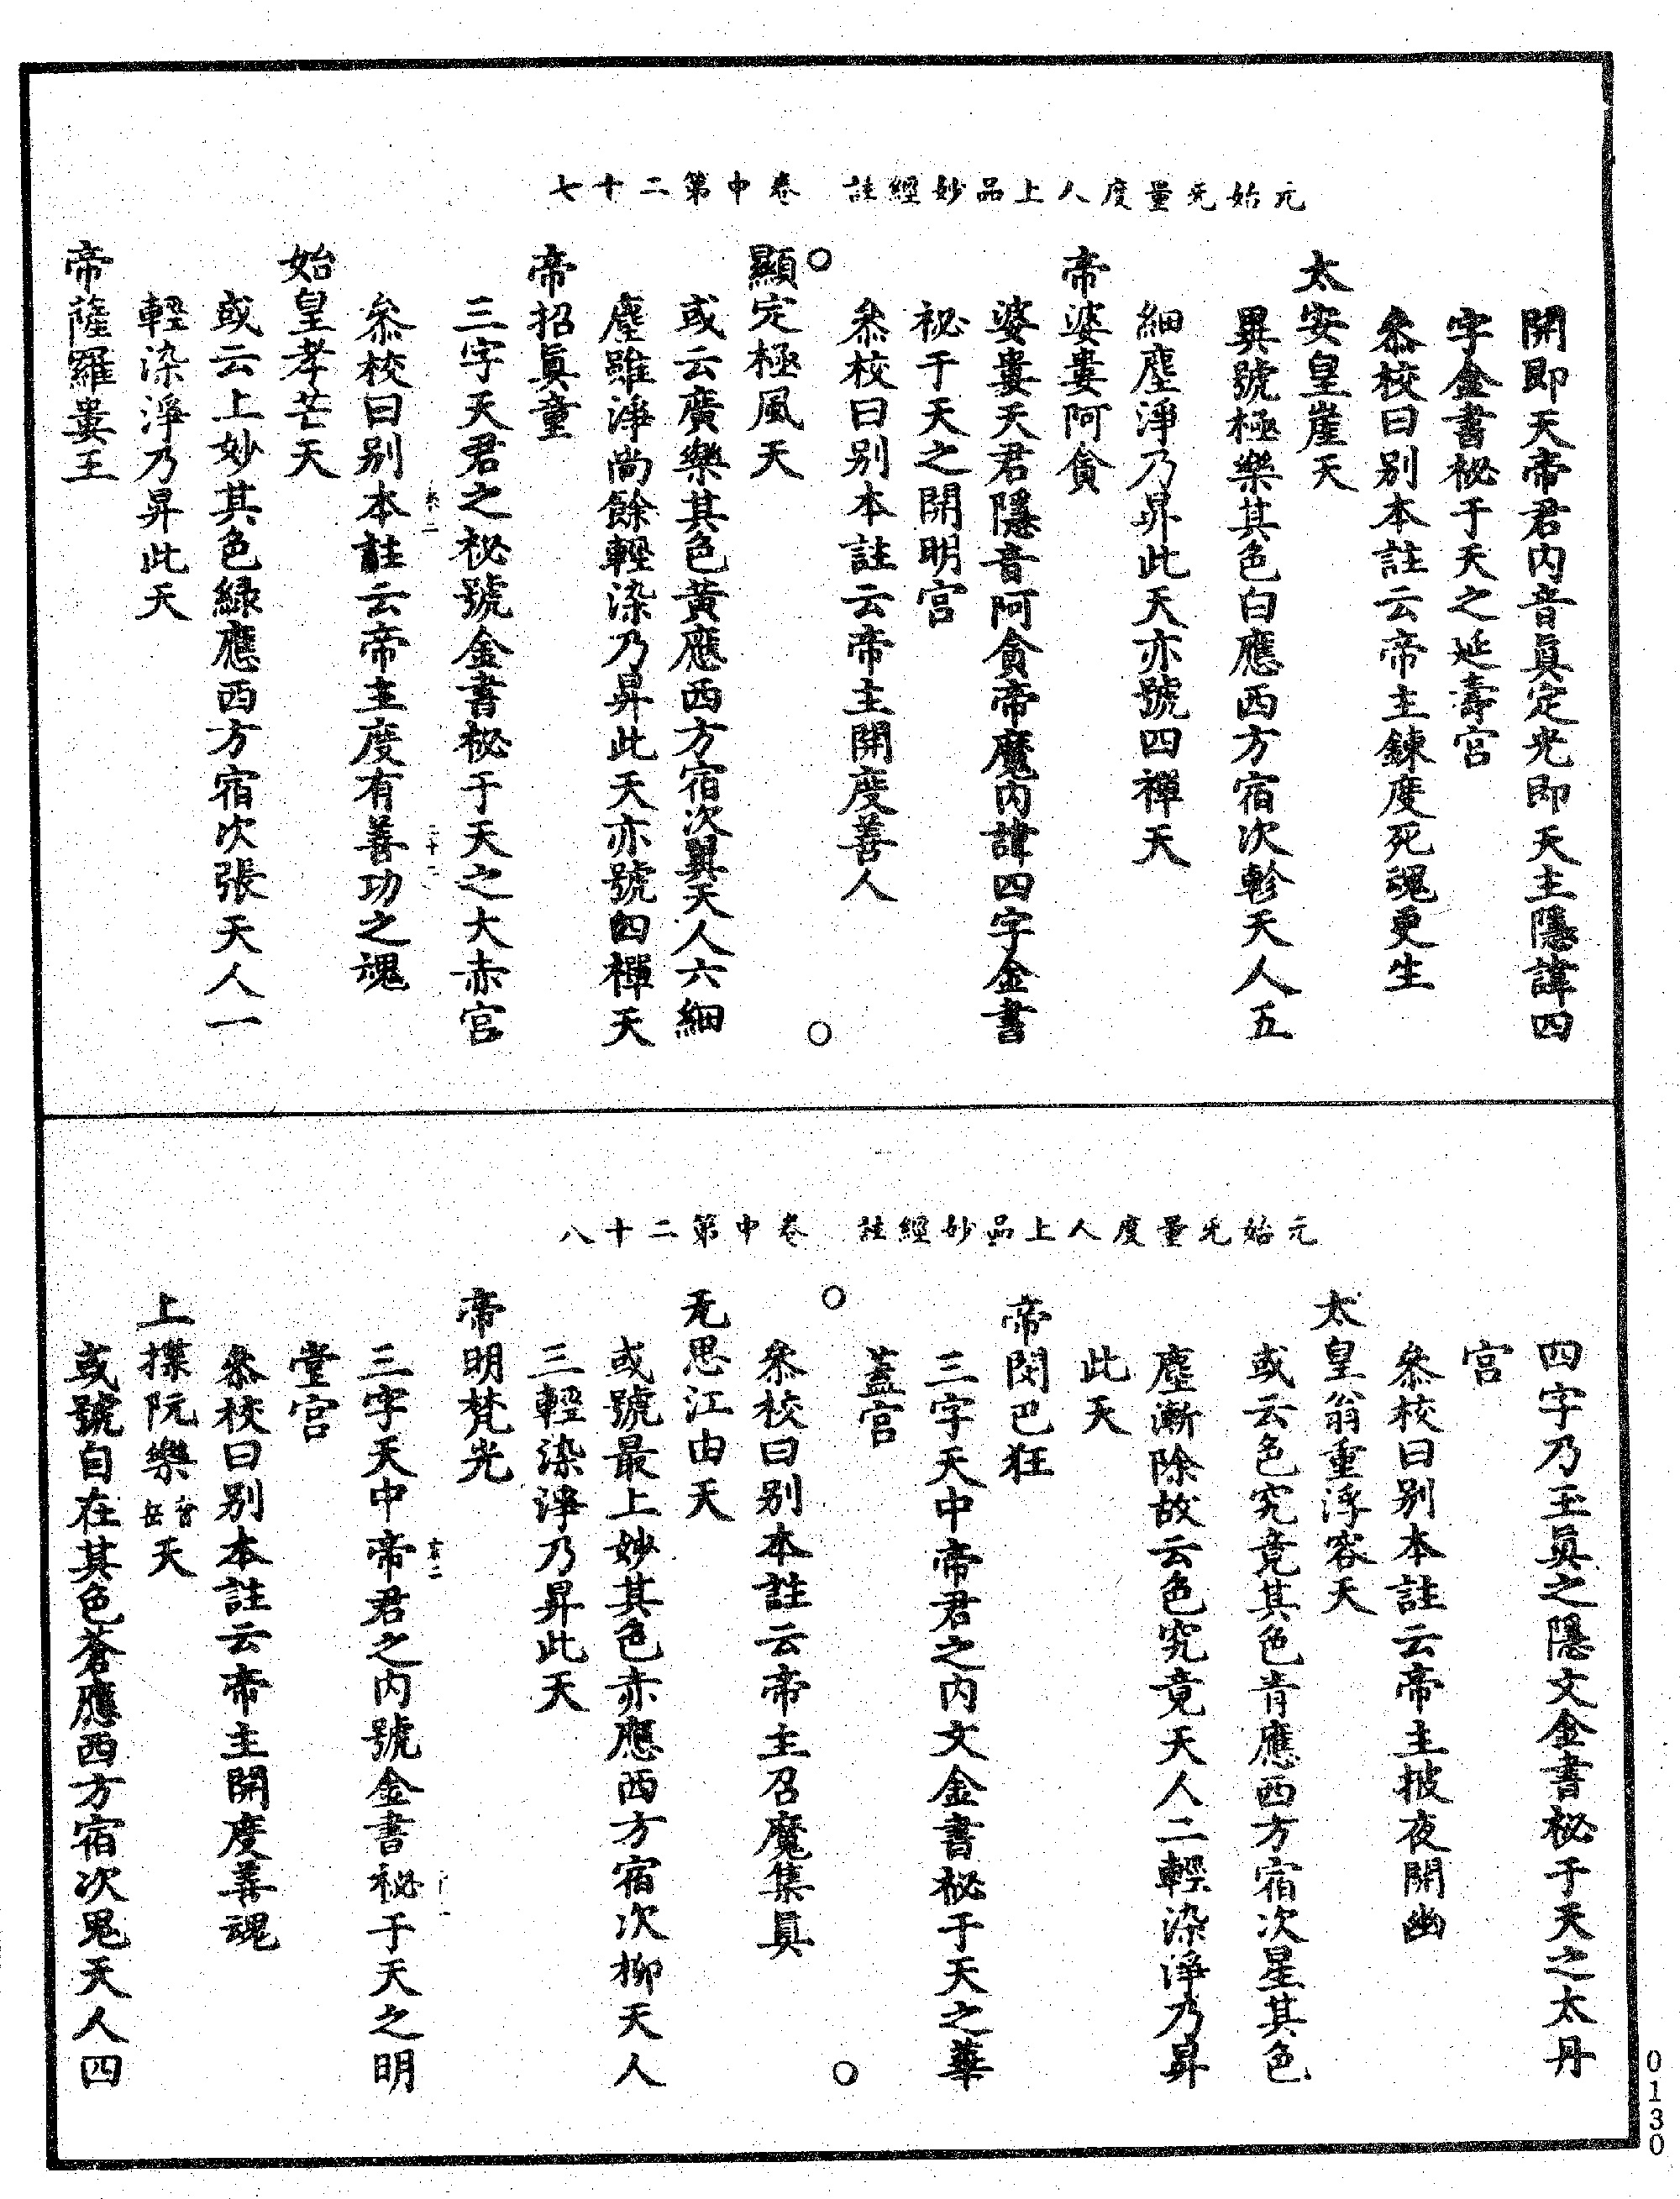 元始无量度人上品妙經註　卷中第二十七
開即天帝君内音眞定光即天主隱諱四
字金書秘于天之延壽宫
叅校曰别本註云帝主鍊度死魂更生
太安皇崖天
異號極樂其色白應西方宿次軫天人五
細塵淨乃昇此天亦號四禪天
帝婆婁阿貪
婆婁天君隱音阿貪帝魔内諱四字金書
祕于天之開明宫
叅校曰别本註云帝主開度善人
顯定極風天
或云廣樂其色黄應西方宿次翼天人六細
塵雖淨尚餘輕染乃昇此天亦號四禪天
帝招眞童
三字天君之祕號金書秘于天之大赤宫
叅校曰别本註云帝主度有善功之魂
始皇孝芒天
或云上妙其色緑應西方宿次張天人一
輕染淨乃昇此天
帝薩羅婁王
元始无量度人上品妙經註　卷中第二十八
四字乃玉眞之隱文金書秘于天之太丹
宫
叅校曰别本註云帝主披夜開幽
太皇翁重浮容天
或云色究竟其色青應西方宿次星其色
塵漸除故云色究竟天人二輕染淨乃昇
此天
帝閔巴狂
三字天中帝君之内文金書秘于天之華
蓋宫
叅校曰别本註云帝主召魔集眞
无思江由天
或號最上妙其色亦應西方宿次柳天人
三輕染淨乃昇此天
帝明梵光
三字天中帝君之内號金書秘于天之明
堂宫
叅校曰别本註云帝主開度善魂
上揲阮樂音岳天
或號自在其色蒼應西方宿次鬼天人四
0130